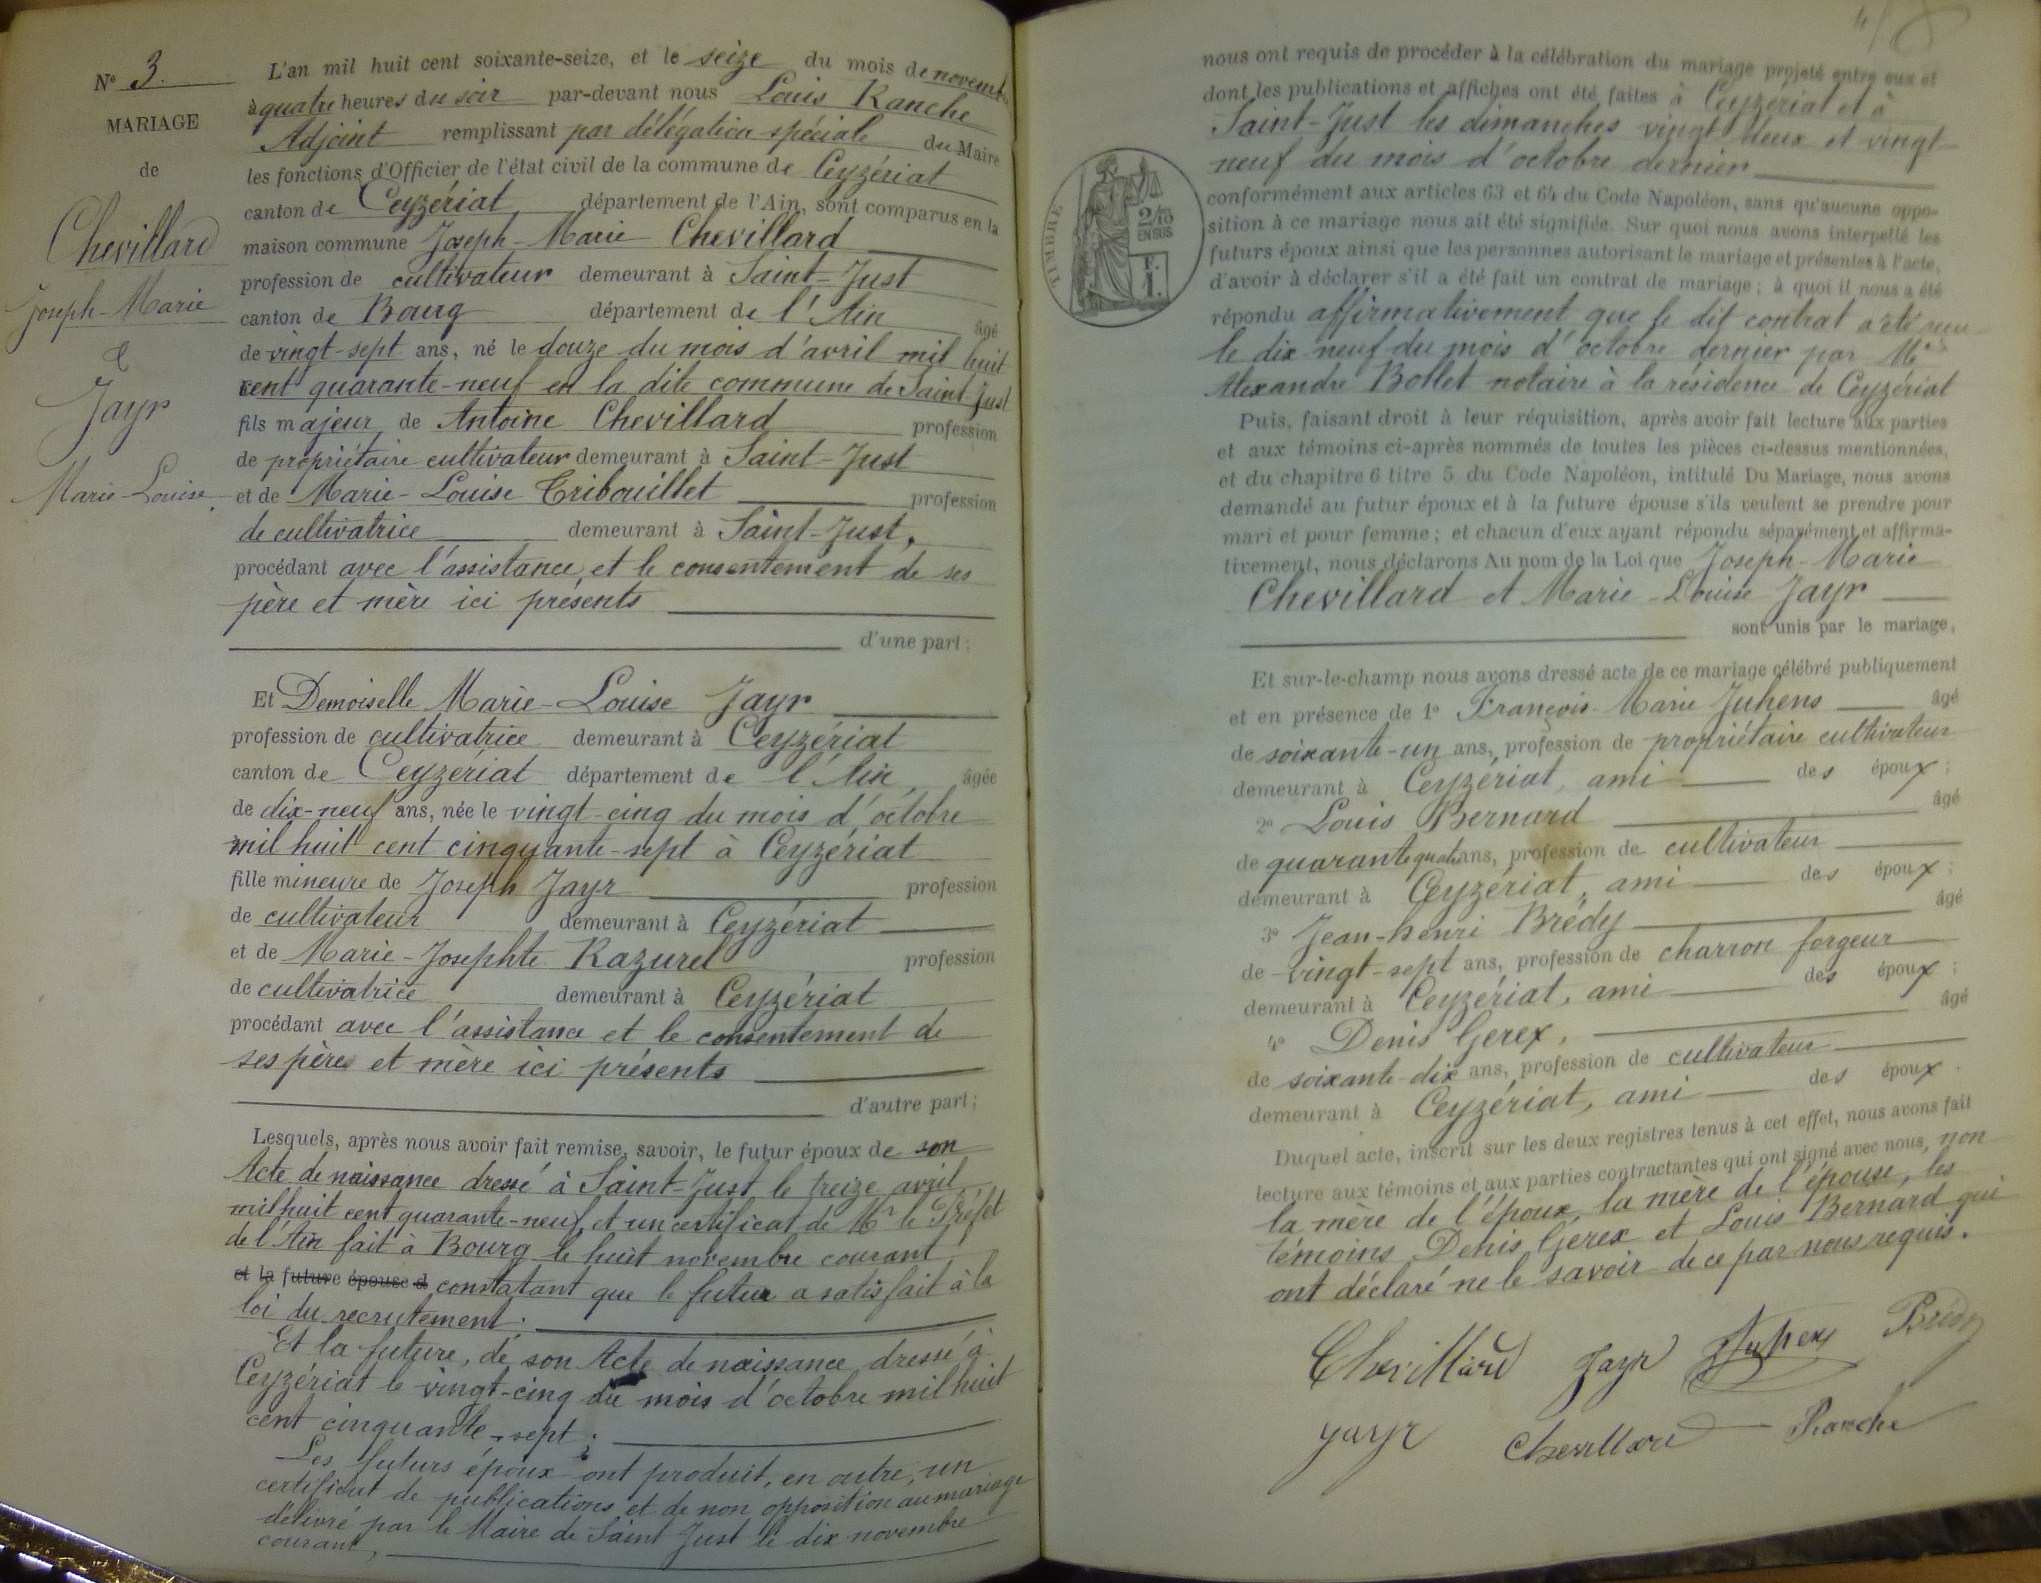 N° 3.
MARIAGE
de
Chevillard
Joseph-Marie
&
Jayr
Marie-Louise
L'an mil huit cent soixante-seize, et le seize du mois de novembre
à quatre heures du soir par-devant nous Louis Ranche
Adjoint remplissant par délégation spéciale du Maire
les fonctions d'Officier de l'état civil de la commune de Ceyzériat
canton de Ceyzériat département de l'Ain, sont comparus en la
maison commune Joseph-Marie Chevillard
profession de cultivateur demeurant à Saint-Just
canton de Bourg département de l'Ain âgé
de vingt-sept ans, né le douze du mois d'avril mil huit
cent quarante-neuf en la dite commune de Saint-Just
fils majeur de Antoine Chevillard profession
de propriétaire cultivateur demeurant à Saint-Just
et de Marie-Louise Tribouillet profession
de cultivatrice demeurant à Saint-Just,
procédant avec l'assistance, et le consentement de ses
père et mère ici présents
d'une part;
Et Demoiselle Marie-Louise Jayr
profession de cultivatrice demeurant à Ceyzériat
canton de Ceyzériat département de l'Ain, âgée
de dix-neuf ans, née le vingt-cinq du mois d'octobre
mil huit cent cinquante-sept à Ceyzériat
fille mineure de Joseph Jayr profession
de cultivateur demeurant à Ceyzériat
et de Marie-Josephte Razurel profession
de cultivatrice demeurant à Ceyzériat
procédant avec l'assistance et le consentement de
ses père et mère ici présents
d'autre part;
Lesquels, après nous avoir fait remise, savoir, le futur époux de son
Acte de naissance dressé à Saint-Just le treize avril
mil huit cent quarante-neuf, et un certificat de Mr le Préfet
de l'Ain fait à Bourg le huit novembre courant
et la future épouse d constatant que le futur a satisfait à la
loi du recrutement.
Et la future, de son Acte de naissance dressé à
Ceyzériat le vingt-cinq du mois d'octobre mil huit
cent cinquante-sept;
Les futurs époux ont produit, en outre, un
certificat de publications et de non opposition au mariage
délivré par le Maire de Saint Just le dix novembre
courant,
nous ont requis de procéder à la célébration du mariage projeté entre eux et
dont les publications et affiches ont été faites à Ceyzériat et à
Saint-Just les dimanches vingt-deux et vingt-
neuf du mois d'octobre dernier
TIMBRE
2/10
EN SUS
F.
1.
conformément aux articles 63 et 64 du Code Napoléon, sans qu'aucune oppo-
sition à ce mariage nous ait été signifiée. Sur quoi nous avons interpellé les
futurs époux ainsi que les personnes autorisant le mariage et présentes à l'acte,
d'avoir à déclarer s'il a été fait un contrat de mariage; à quoi il nous a été
répondu affirmativement que le dit contrat a été reçu
le dix neuf du mois d'octobre dernier par Me
Alexandre Bollet notaire à la résidence de Ceyzériat
Puis, faisant droit à leur réquisition, après avoir fait lecture aux parties
et aux témoins ci-après nommés de toutes les pièces ci-dessus mentionnées,
et du chapitre 6 titre 5 du Code Napoléon, intitulé Du Mariage, nous avons
demandé au futur époux et à la future épouse s'ils veulent se prendre pour
mari et pour femme; et chacun d'eux ayant répondu séparément et affirma-
tivement, nous déclarons Au nom de la Loi que Joseph-Marie
Chevillard et Marie-Louise Jayr
sont unis par le mariage,
Et sur-le-champ nous avons dressé acte de ce mariage célébré publiquement
et en présence de 1° François-Marie Juhens âgé
de soixante-un ans, profession de propriétaire cultivateur
demeurant à Ceyzériat, ami des époux;
2° Louis Bernard âgé
de quarante quatre ans, profession de cultivateur
demeurant à Ceyzériat, ami des époux;
3° Jean-henri Brédy âgé
de vingt-sept ans, profession de charron forgeur
demeurant à Ceyzériat, ami des époux;
4° Denis Gerex, âgé
de soixante-dix ans, profession de cultivateur
demeurant à Ceyzériat, ami des époux.
Duquel acte, inscrit sur les deux registres tenus à cet effet, nous avons fait
lecture aux témoins et aux parties contractantes qui ont signé avec nous, non
la mère de l'époux, la mère de l'épouse, les
témoins Denis Gérex et Louis Bernard qui
ont déclaré ne le savoir de ce par nous requis.
Chevillard Jayr Juhens Brédy
Jayr Chevillard Ranche